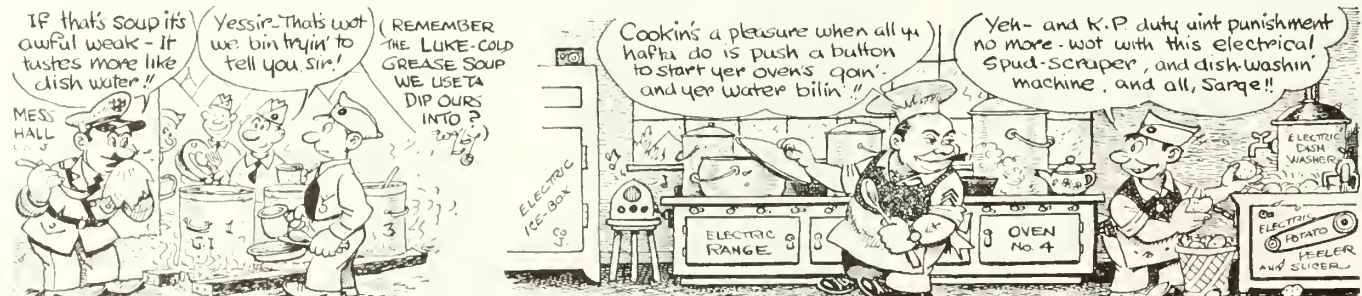 IF that's soup it's
awful weak - It
tastes more like
dish water!!
Yessir - That's wot
we bin tryin' to
tell you, sir!
(REMEMBER
THE LUKE-COLD
GREASE SOUP
WE USETA
DIP OURS
INTO?
MESS
HALL
G.I. 1
3
Cookin's a pleasure when all yu
hafta do is push a button
to start yer oven's goin'-
and yer water bilin'!!
Yeh - and K.P. duty aint punishment
no more - wot with this electrical
Spud-scraper, and dish-washin'
machine, and all, Sarge!!
ELECTRIC
ICE-BOX
ELECTRIC
RANGE
OVEN
No. 4
ELECTRIC
DISH
WASHER
ELECTRIC
POTATO
PEELER
AND SLICER